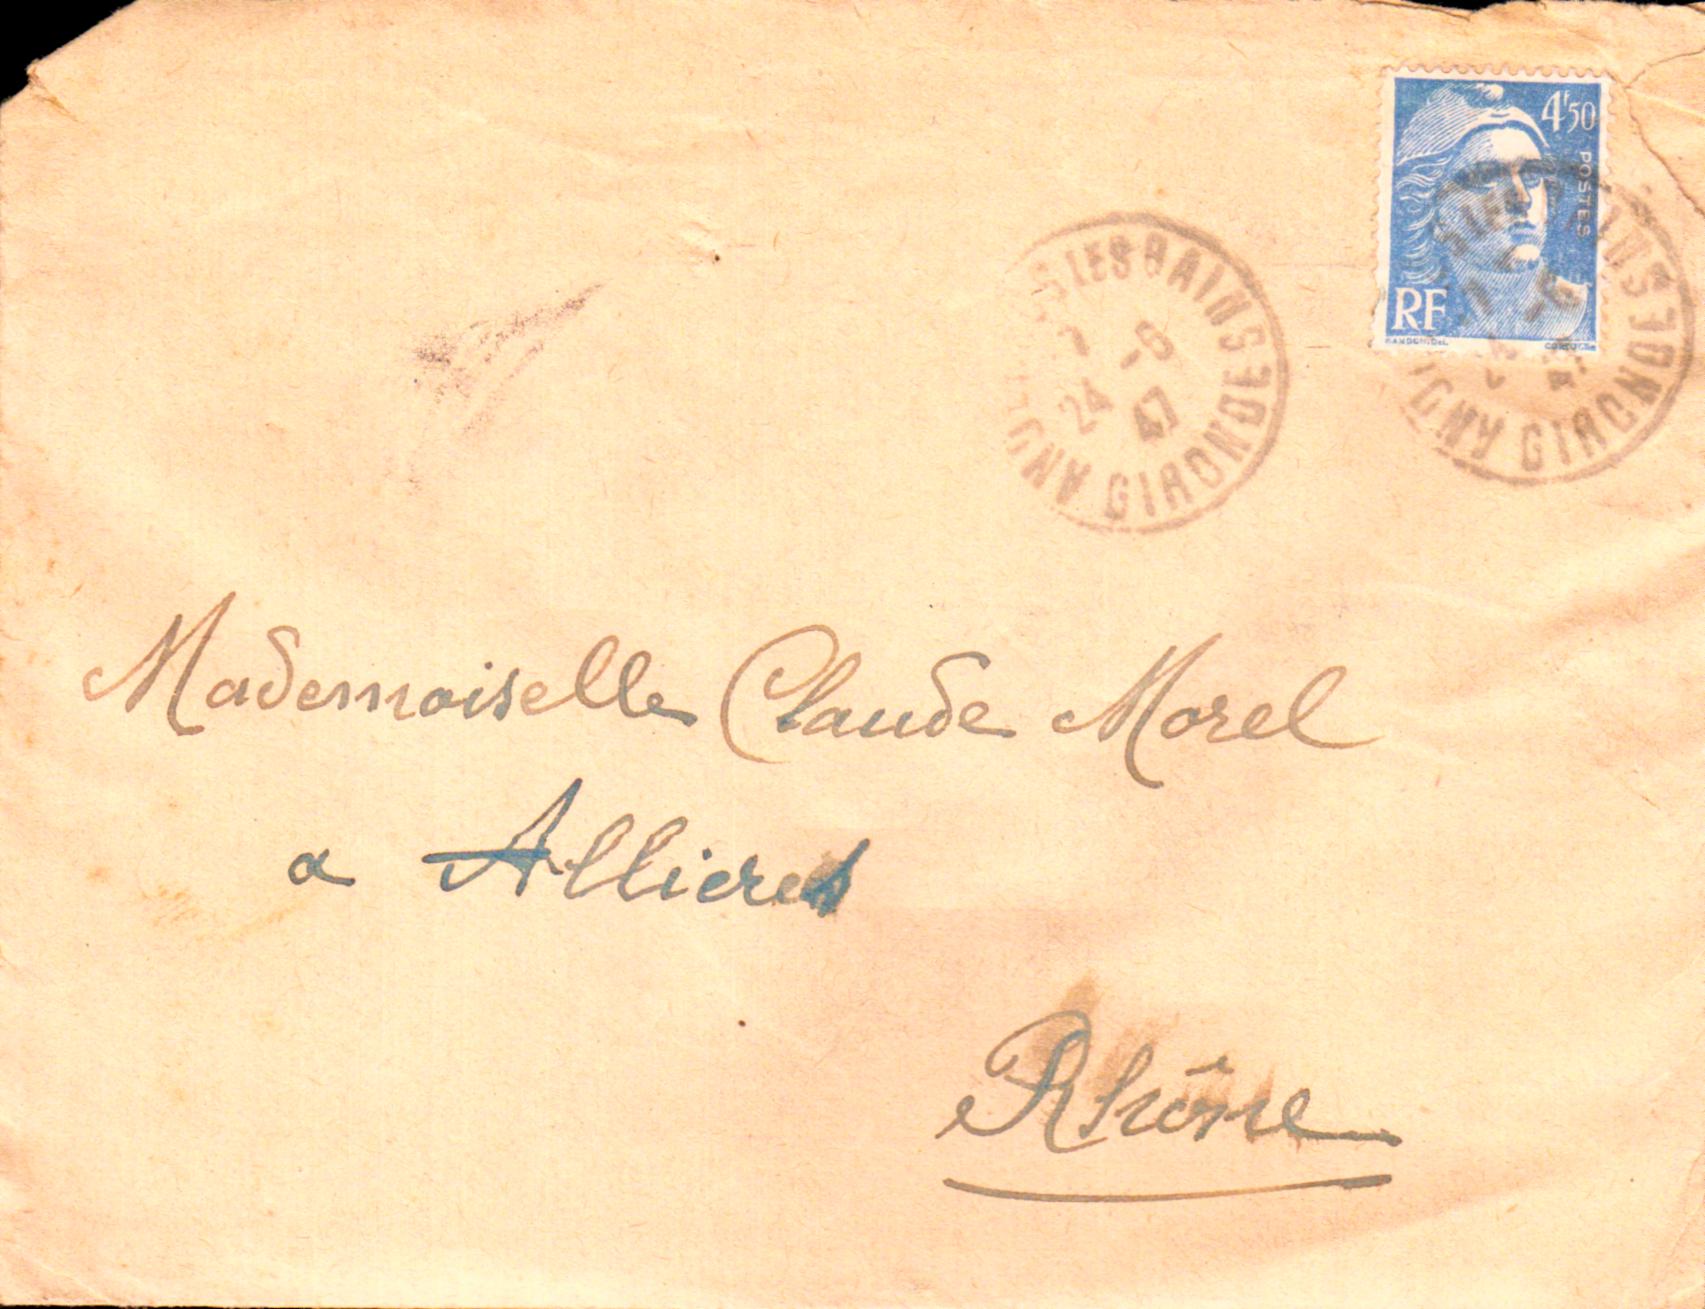 4F50
POSTES
RF
GANDON DEL.
CORTOT SC.
S LES BAINS DE
7 -6
24 47
GIRONDE
INS DE
GIRONDE
Mademoiselle Claude Morel
a Allieres
Rhône